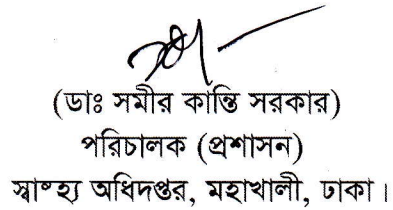 (ডাঃ সমীর কান্তি সরকার)
পরিচালক (প্রশাসন)
স্বাস্হ্য অধিদপ্তর, মহাখালী, ঢাকা।